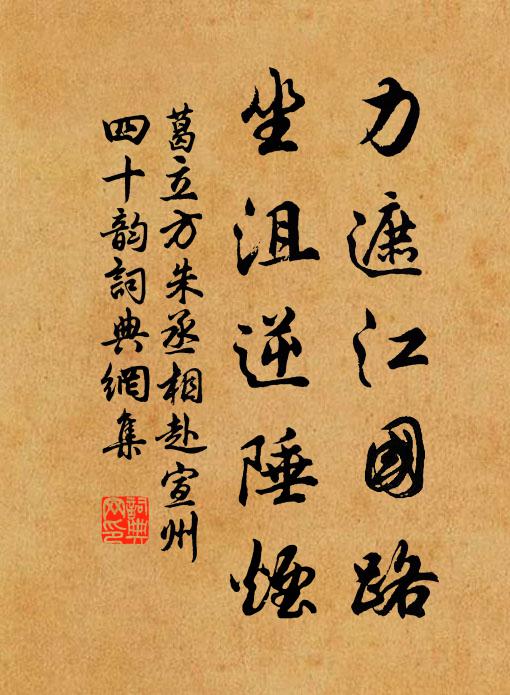 力遮江國路
坐沮逆陲煙
葛立方朱丞相赴宣州
四十韵詞典網集
詞典網印